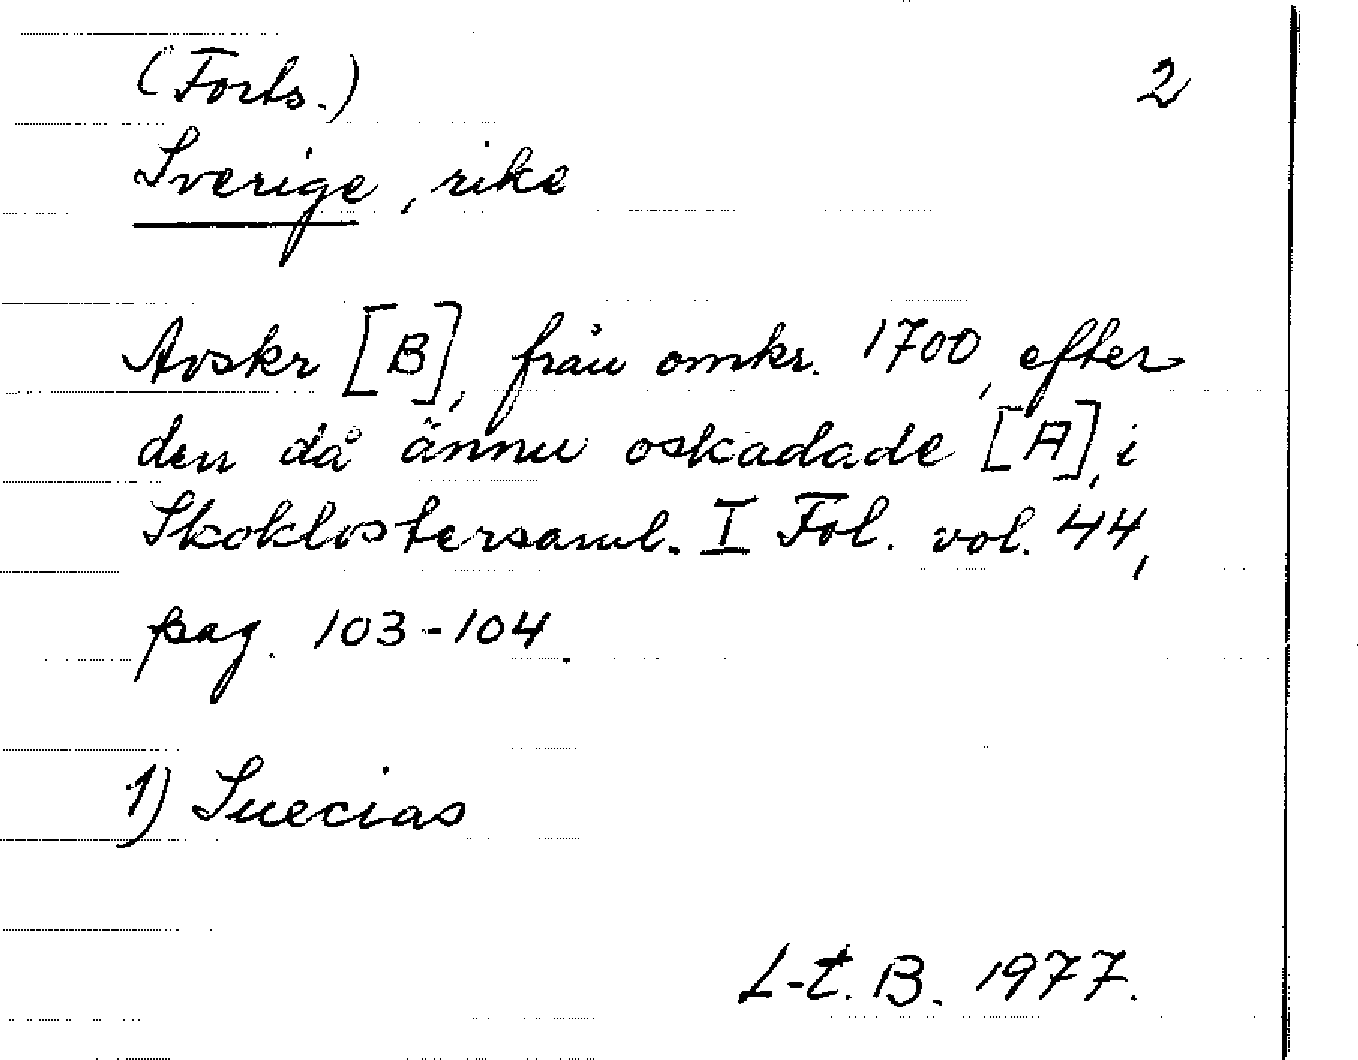 (Forts.) 2
Sverige, rike
Avskr [B], från omkr. 1700, efter
den då ännu oskadade [A], i
Skoklostersaml. I Fol. vol. 44,
pag. 103-104.
1) Suecias
L-t. B. 1977.